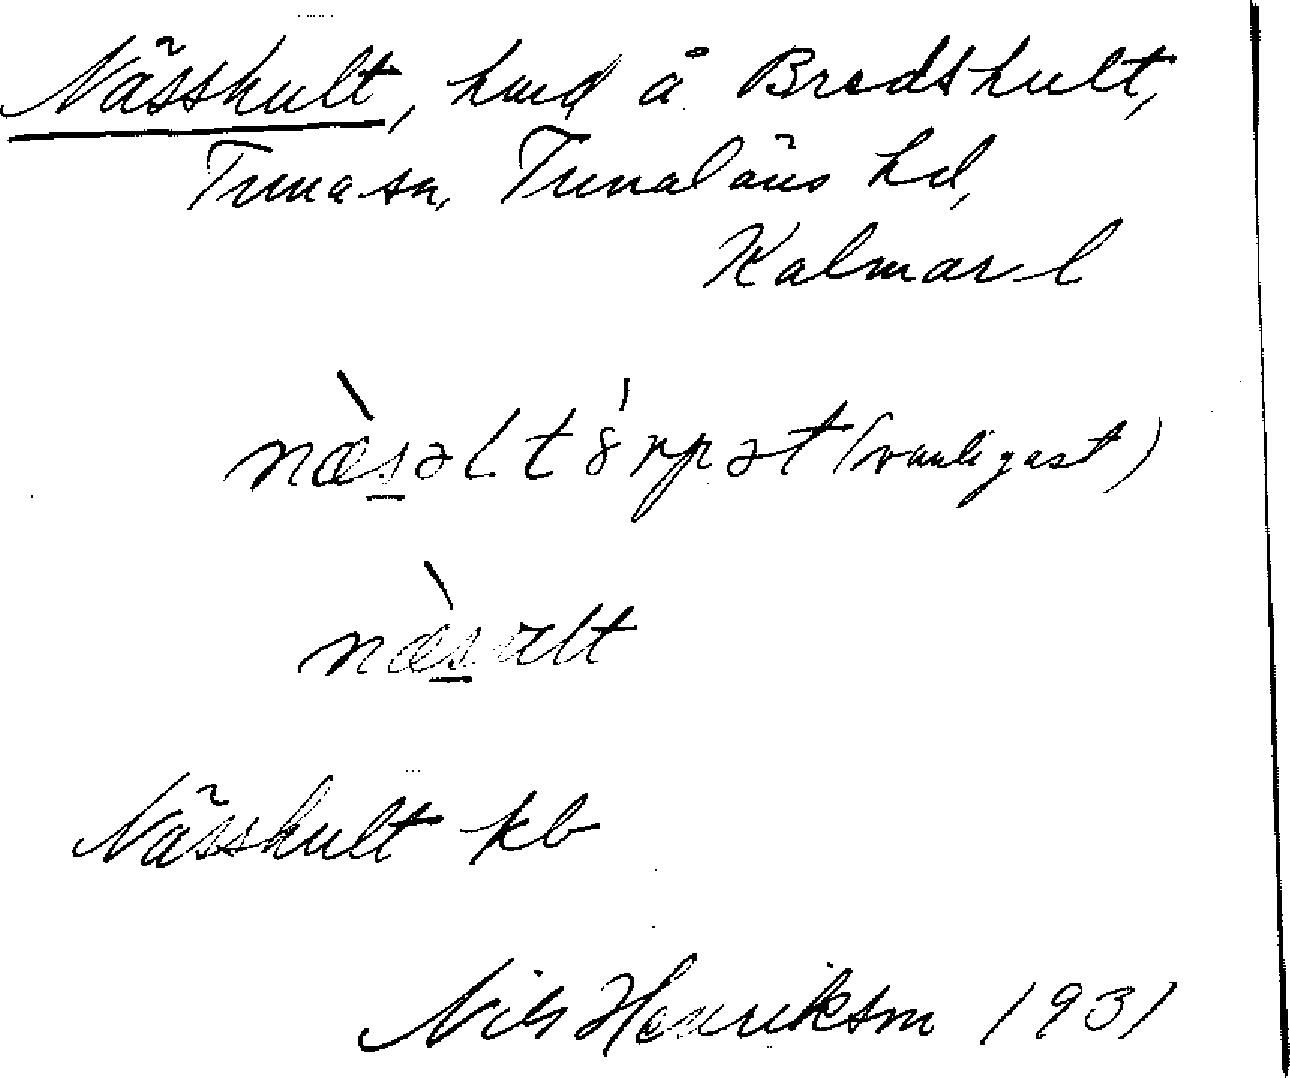 Nässhult, hmd å Bredshult,
Tuna sn, Tunaläns hd,
Kalmar l
(vanligast)
Nässhult kb
Nils Henriksson 1931